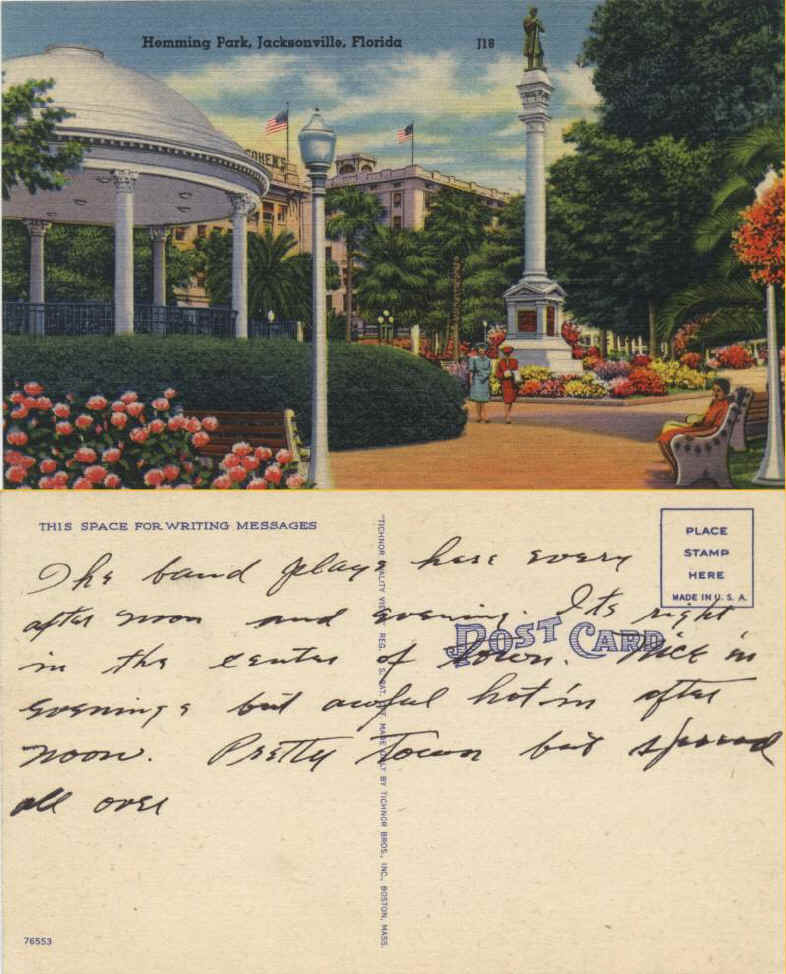 Hemming Park, Jacksonville, Florida J18
COHEN'S
THIS SPACE FOR WRITING MESSAGES
PLACE
STAMP
HERE
MADE IN U. S. A.
POST CARD
The band plays here every
after noon and evening. Its right
in the center of town. Nice in
evenings but awful hot in after
noon. Pretty Town but spread
all over
"TICHNOR QUALITY VIEWS," REG. U. S. PAT. OFF. MADE ONLY BY TICHNOR BROS., INC., BOSTON, MASS.
76553